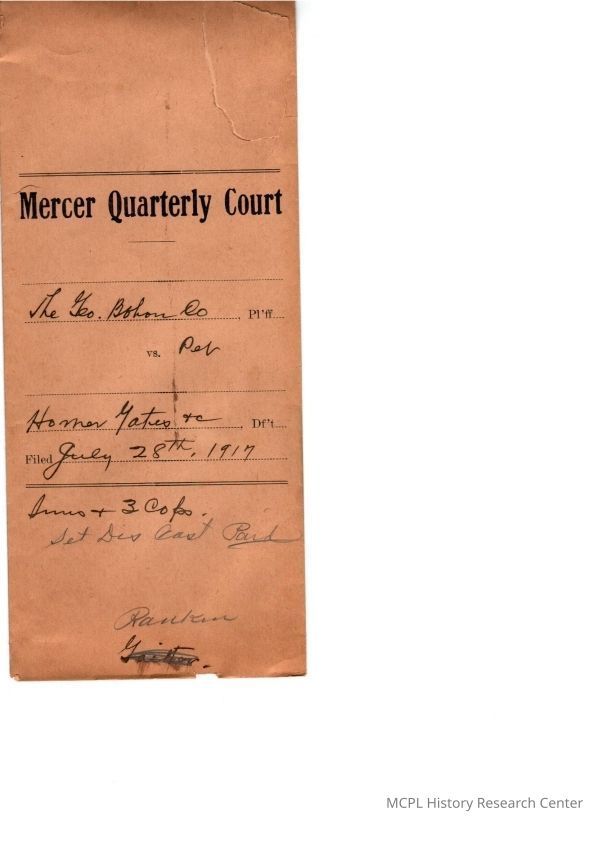 Mercer Quarterly Court
The Geo. Bohon Co , Pl'ff
vs. Pet
Homer Yates &c , Df't
Filed July 28th, 1917
Sums + 3 Cops.
Set Dis Cost Paid
Rankin
MCPL History Research Center